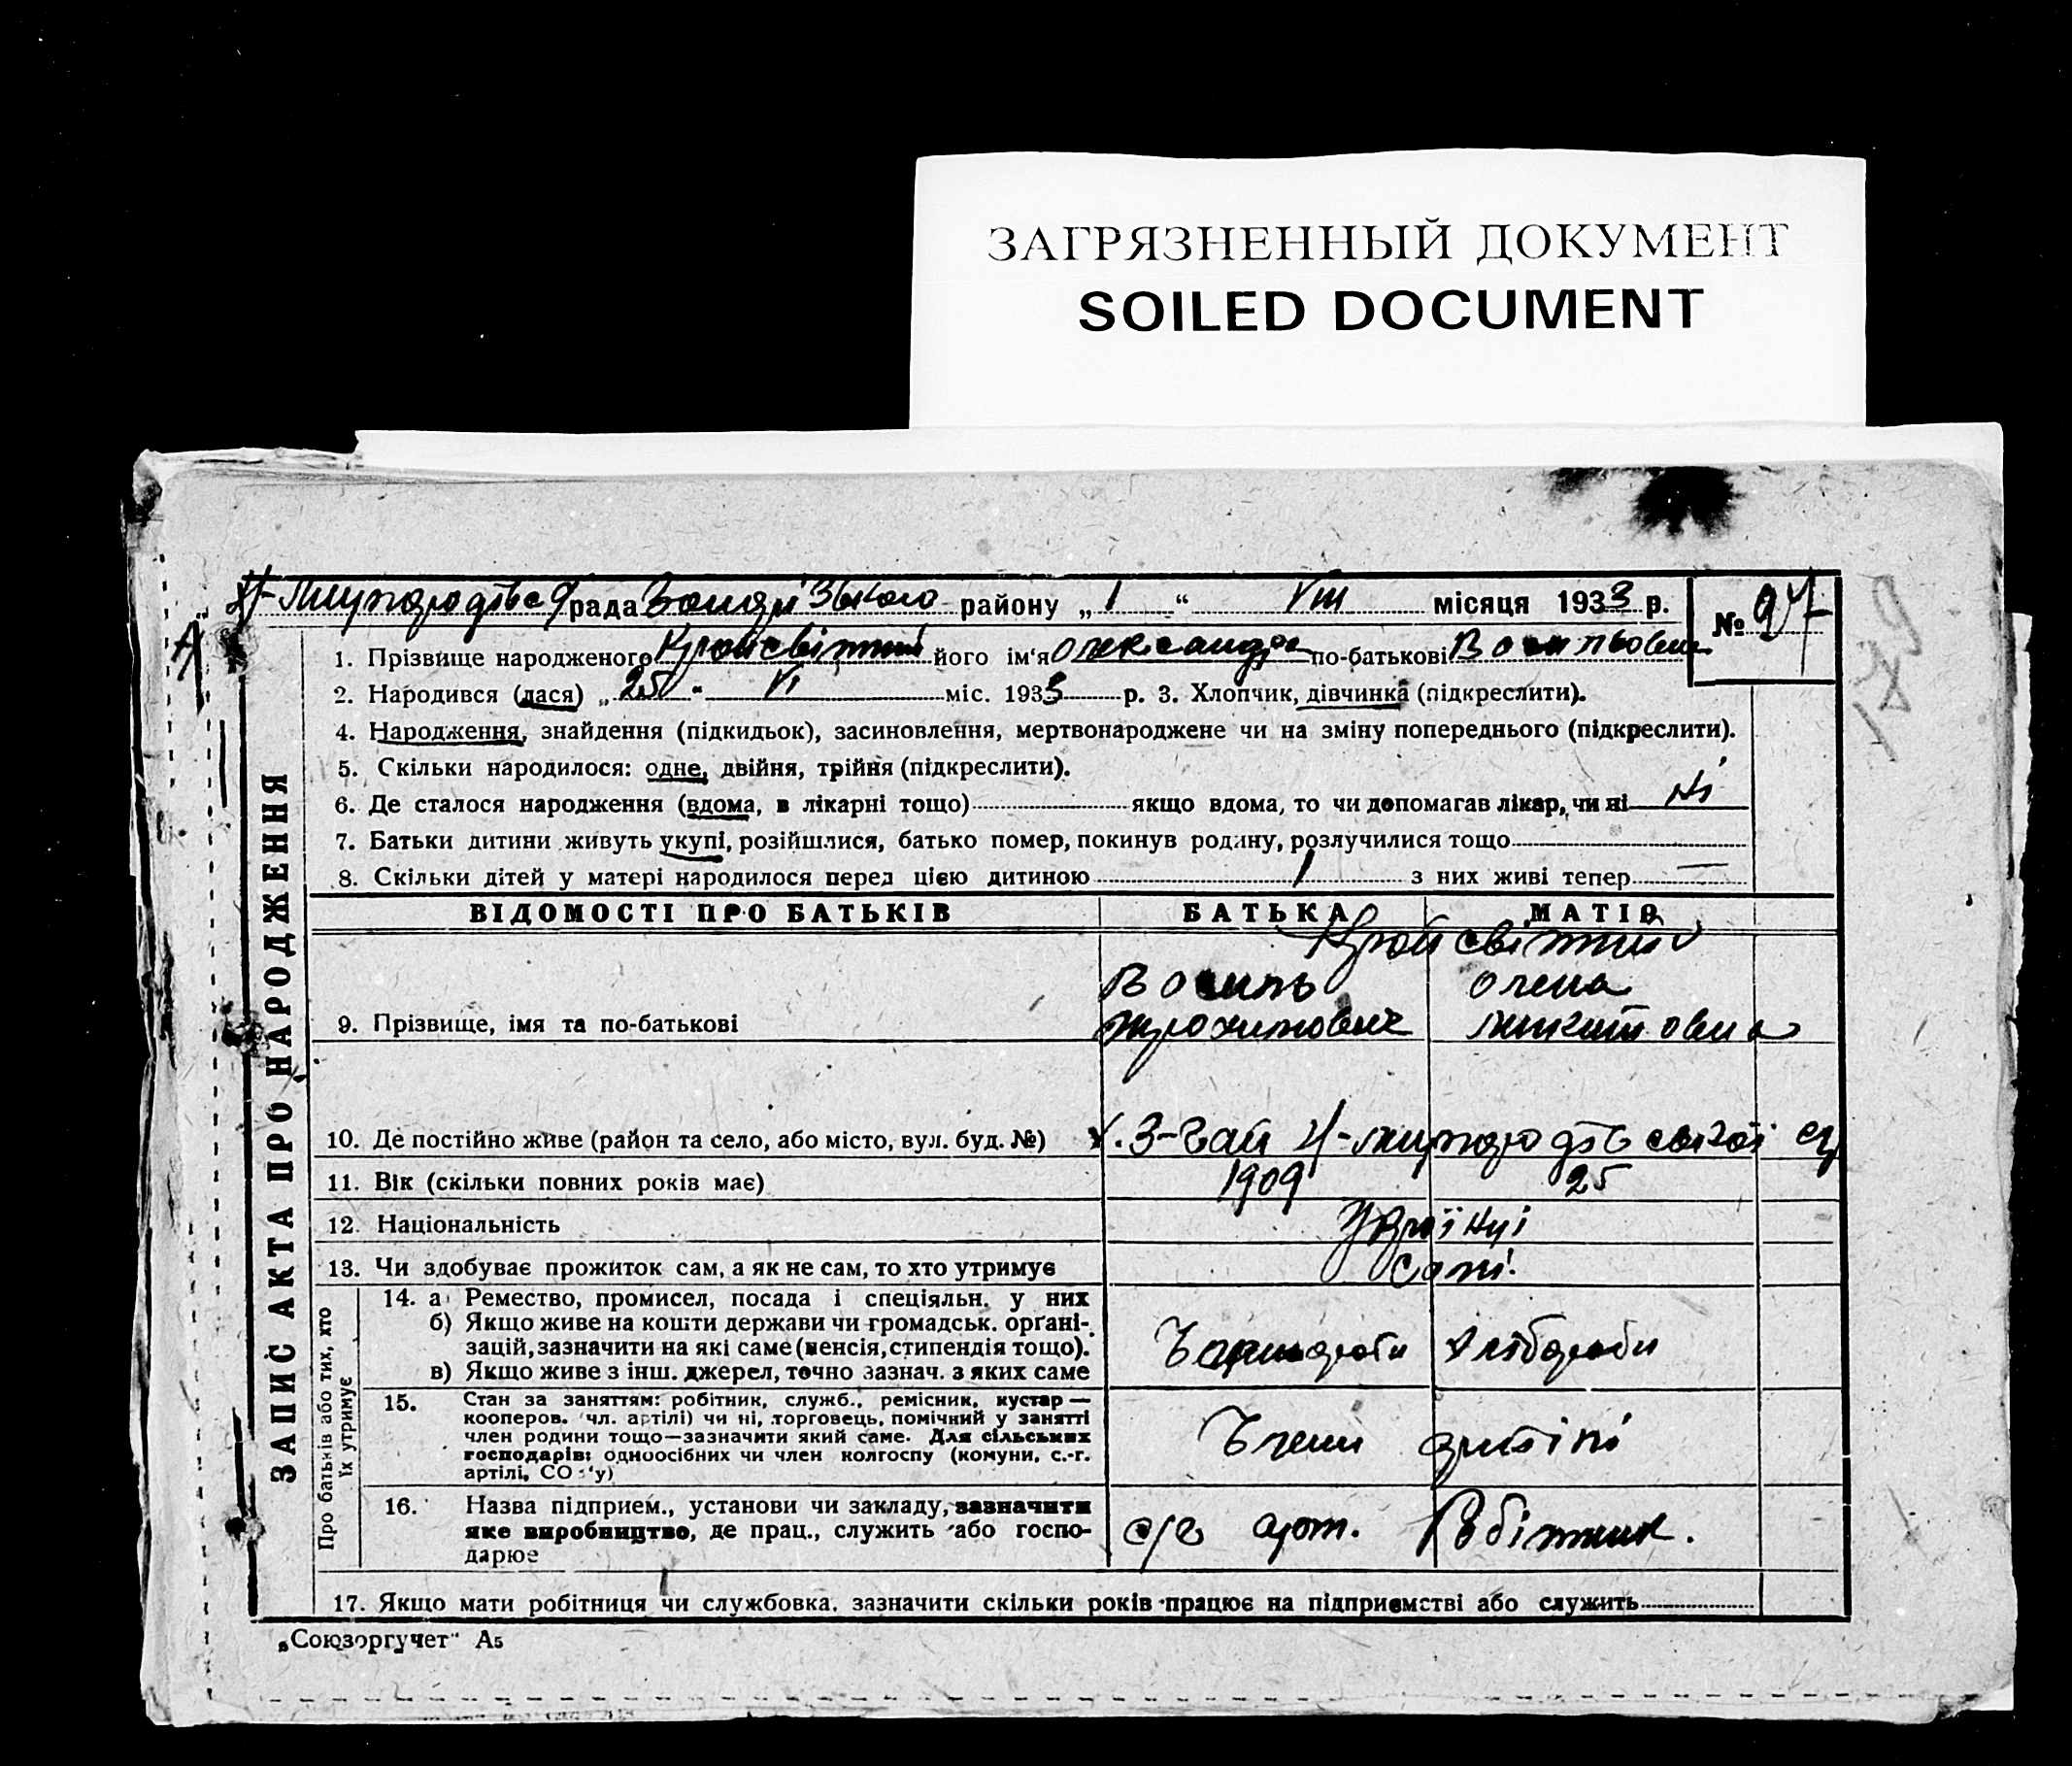 ЗАГРЯЗНЕННЫЙ ДОКУМЕНТ
SOILED DOCUMENT
рада району „ 1 “ VIII місяця 1933 р.
№ 97
ЗАПИС АКТА ПРО НАРОДЖЕННЯ
1. Прізвище народженого його ім'я Олександра по-батькові Васильовна
2. Народився (лася) „ 25 " VI міс. 1933 р. 3. Хлопчик, дівчинка (підкреслити).
4. Народження, знайдення (підкидьок), засиновлення, мертвонароджене чи на зміну попереднього (підкреслити).
5. Скільки народилося: одне, двійня, трійня (підкреслити).
6. Де сталося народження (вдома, в лікарні тощо) якщо вдома, то чи допомагав лікар, чи ні ні
7. Батьки дитини живуть укупі, розійшлися, батько помер, покинув родину, розлучилися тощо
8. Скільки дітей у матері народилося перед цією дитиною 1 з них живі тепер —
ВІДОМОСТІ ПРО БАТЬКІВ БАТЬКА МАТІР
Василь Олена
9. Прізвище, імя та по-батькові
10. Де постійно живе (район та село, або місто, вул. буд. №)
11. Вік (скільки повних років має) 1909 25
12. Національність Українці
13. Чи здобуває прожиток сам, а як не сам, то хто утримує Самі
Про батьків або тих, хто
їх утримує
14. а Ремество, промисел, посада і спеціяльн. у них
б) Якщо живе на кошти держави чи громадськ. орґані-
зацій, зазначити на які саме (пенсія, стипендія тощо).
в) Якщо живе з інш. джерел, точно зазнач. з яких саме
Хлібороби
15. Стан за заняттям: робітник, служб., ремісник, кустар —
кооперов. чл. артілі) чи ні, торговець, помічний у занятті
член родини тощо—зазначити який саме. Для сільських
господарів: одноосібних чи член колгоспу (комуни, с.-г.
артілі, СО 'у)
Члени артілі
16. Назва підприєм., установи чи закладу, зазначити
яке виробництво, де прац., служить або госпо-
дарює
с/г арт. Робітник.
17. Якщо мати робітниця чи службовка, зазначити скільки років працює на підприємстві або служить
„Союзоргучет" А5